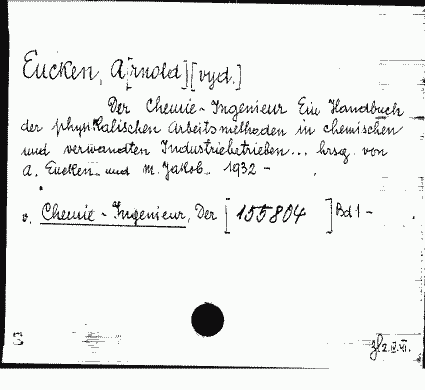 Eucken, A[rnold] [vyd.]
Der Chemie-Ingenieur Ein Handbuch
der physikalischen Arbeitsmethoden in chemischen
und verwandten Industriebetrieben... hrsg. von
A. Eucken und M. Jakob. 1932 -
v. Chemie-Ingenieur, Der [155804] Bd 1 -